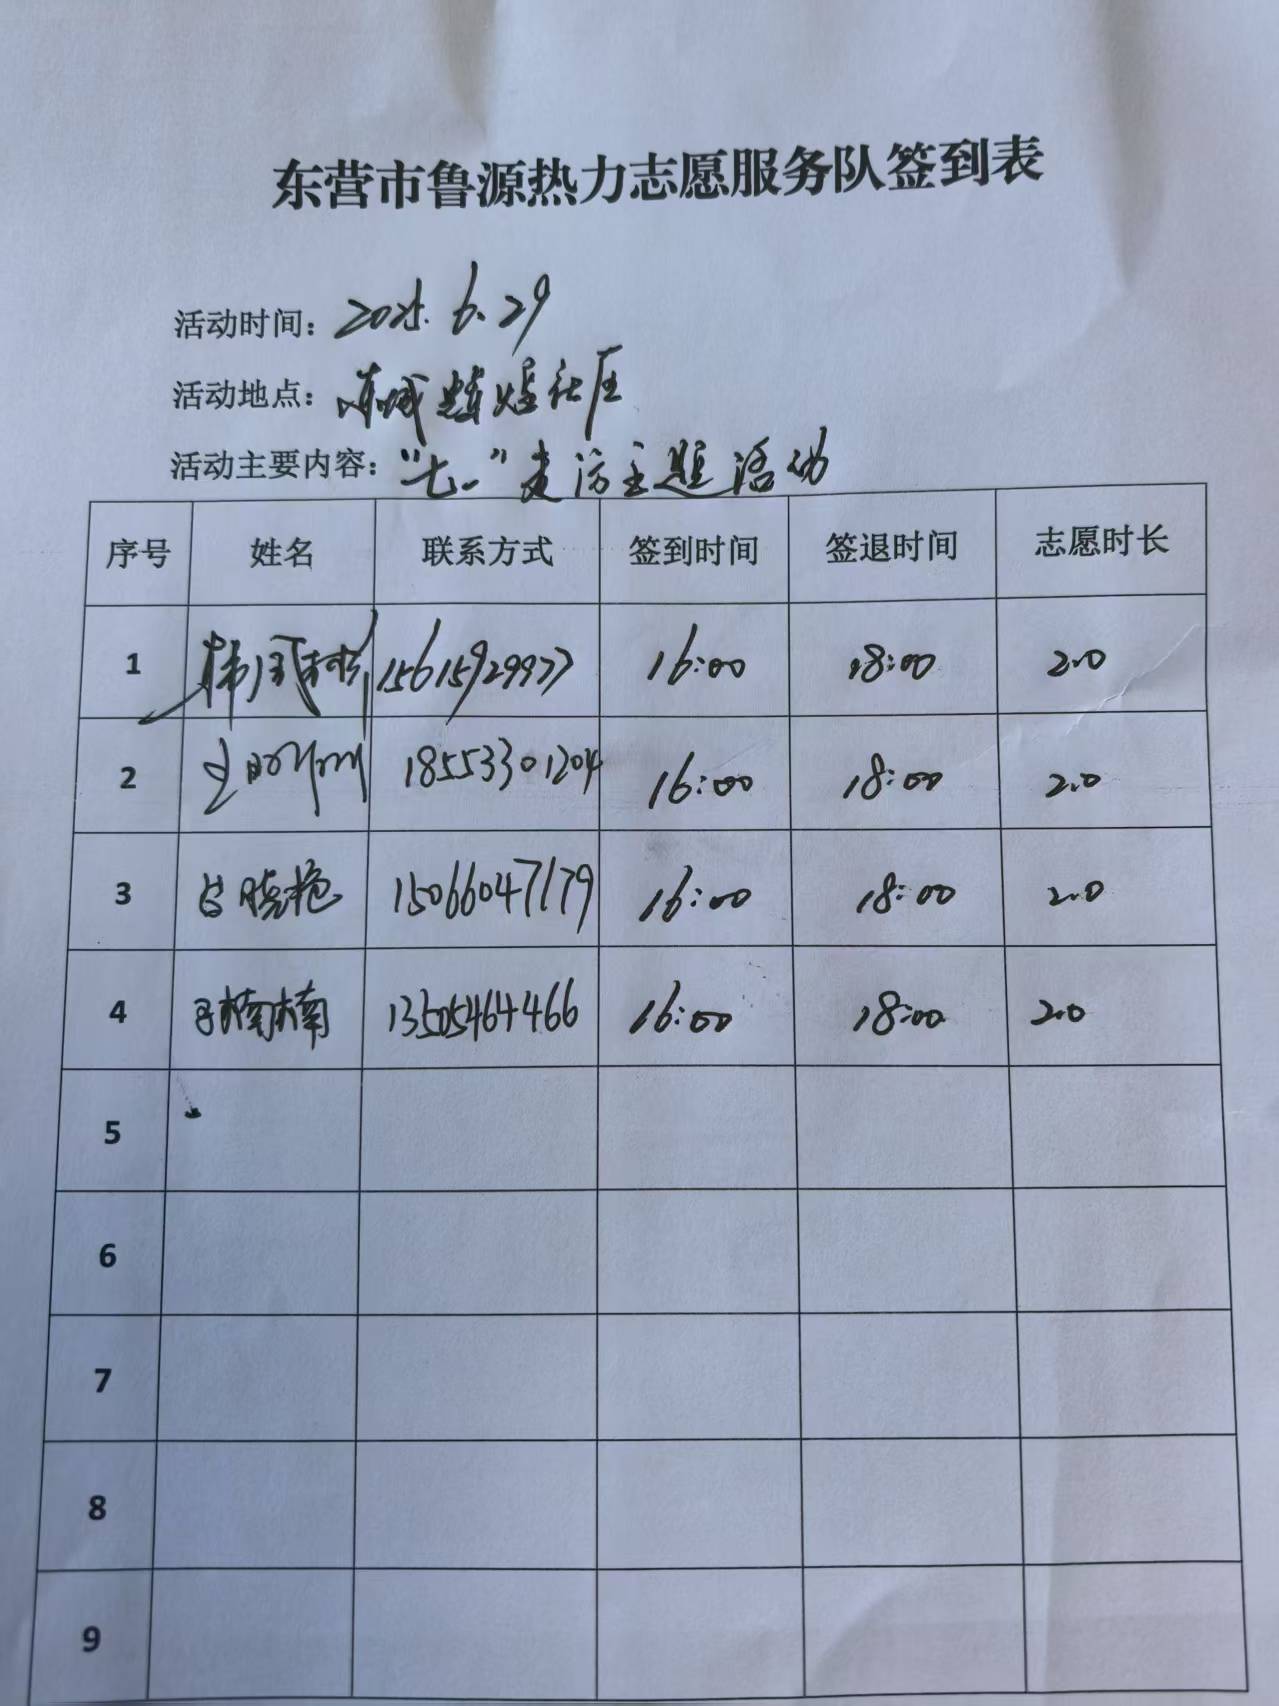 东营市鲁源热力志愿服务队签到表
活动时间：2025.6.29
活动地点：东城 社区
活动主要内容："七一"走访主题活动
序号 姓名 联系方式 签到时间 签退时间 志愿时长
1 15615929977 16:00 18:00 2.0
2 18553301204 16:00 18:00 2.0
3 15066047179 16:00 18:00 2.0
4 楠楠 13505464466 16:00 18:00 2.0
5
6
7
8
9